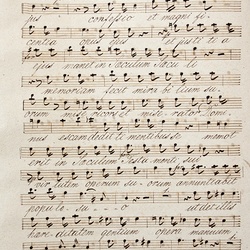 jus confessio et magnifi
centia opus ejus et justitia
ejus manet in Saeculum Saecu li
memoriam fecit mira bi lium su
orum misericors et mise rator Domi
nus escam dedit timentibus se memor
erit in Saeculum Testa menti sui
vir tutem operum su orum annuntiabit
populo su o ut det illis
haere ditatem gentium opera manuum